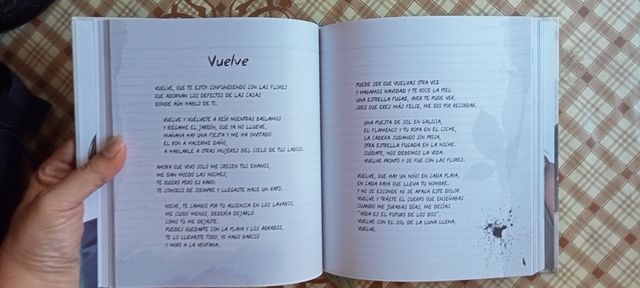 Vuelve
VUELVE, QUE TE ESTOY CONFUNDIENDO CON LAS FLORES
QUE ADORNAN LOS DEFECTOS DE LAS CASAS
DONDE AÚN HABLO DE TI.
VUELVE Y VUÉLVETE A REÍR MIENTRAS BAILAMOS
Y RIÉGAME EL JARDÍN, QUE YA NO LLUEVE,
MAÑANA HAY UNA FIESTA Y ME HA INVITADO
EL RON A HACERME DAÑO,
A HABLARLE A OTRAS MUJERES DEL CIELO DE TUS LABIOS.
AHORA QUE VIVO SOLO ME CRECEN TUS ENANOS,
ME DAN MIEDO LAS NOCHES,
TE QUIERO PERO ES RARO:
TE CONOZCO DE SIEMPRE Y LLEGASTE HACE UN RATO.
NIEVE, TE CAMBIO POR TU AUSENCIA EN LOS LAVABOS,
ME CUIDO MENOS, DEBERÍA DEJARLO
COMO TÚ ME DEJASTE.
PUEDES QUEDARTE CON LA PLAYA Y LOS ABRAZOS,
TE LO LLEVASTE TODO, YO HAGO BARCOS
Y MIRO A LA VENTANA.
PUEDE SER QUE VUELVAS OTRA VEZ
Y HAGAMOS NAVIDAD Y TE ROCE LA PIEL
UNA ESTRELLA FUGAZ, AYER TE PUDE VER,
CREO QUE ERES MÁS FELIZ, ME DIO POR RECORDAR.
UNA PUESTA DE SOL EN GALICIA,
EL FLAMENCO Y TU ROPA EN EL COCHE,
LA CADERA SUDANDO SIN PRISA,
OTRA ESTRELLA FUGADA EN LA NOCHE.
CUÍDATE, NOS DEBEMOS LA VIDA.
VUELVE PRONTO Y SE FUE CON LAS FLORES.
VUELVE, QUE HAY UN NIÑO EN CADA PLAYA,
EN CADA RAYA QUE LLEVA TU NOMBRE.
Y NO SE ESCONDE NI SE APAGA ESTE DOLOR.
VUELVE Y TRÁETE EL CUERPO QUE ENSEÑABAS
CUANDO ME JURABAS DÍAS, ME DECÍAS
"VIDA ES EL FUTURO DE LOS DOS".
VUELVE CON EL SOL DE LA LUNA LLENA,
VUELVE.